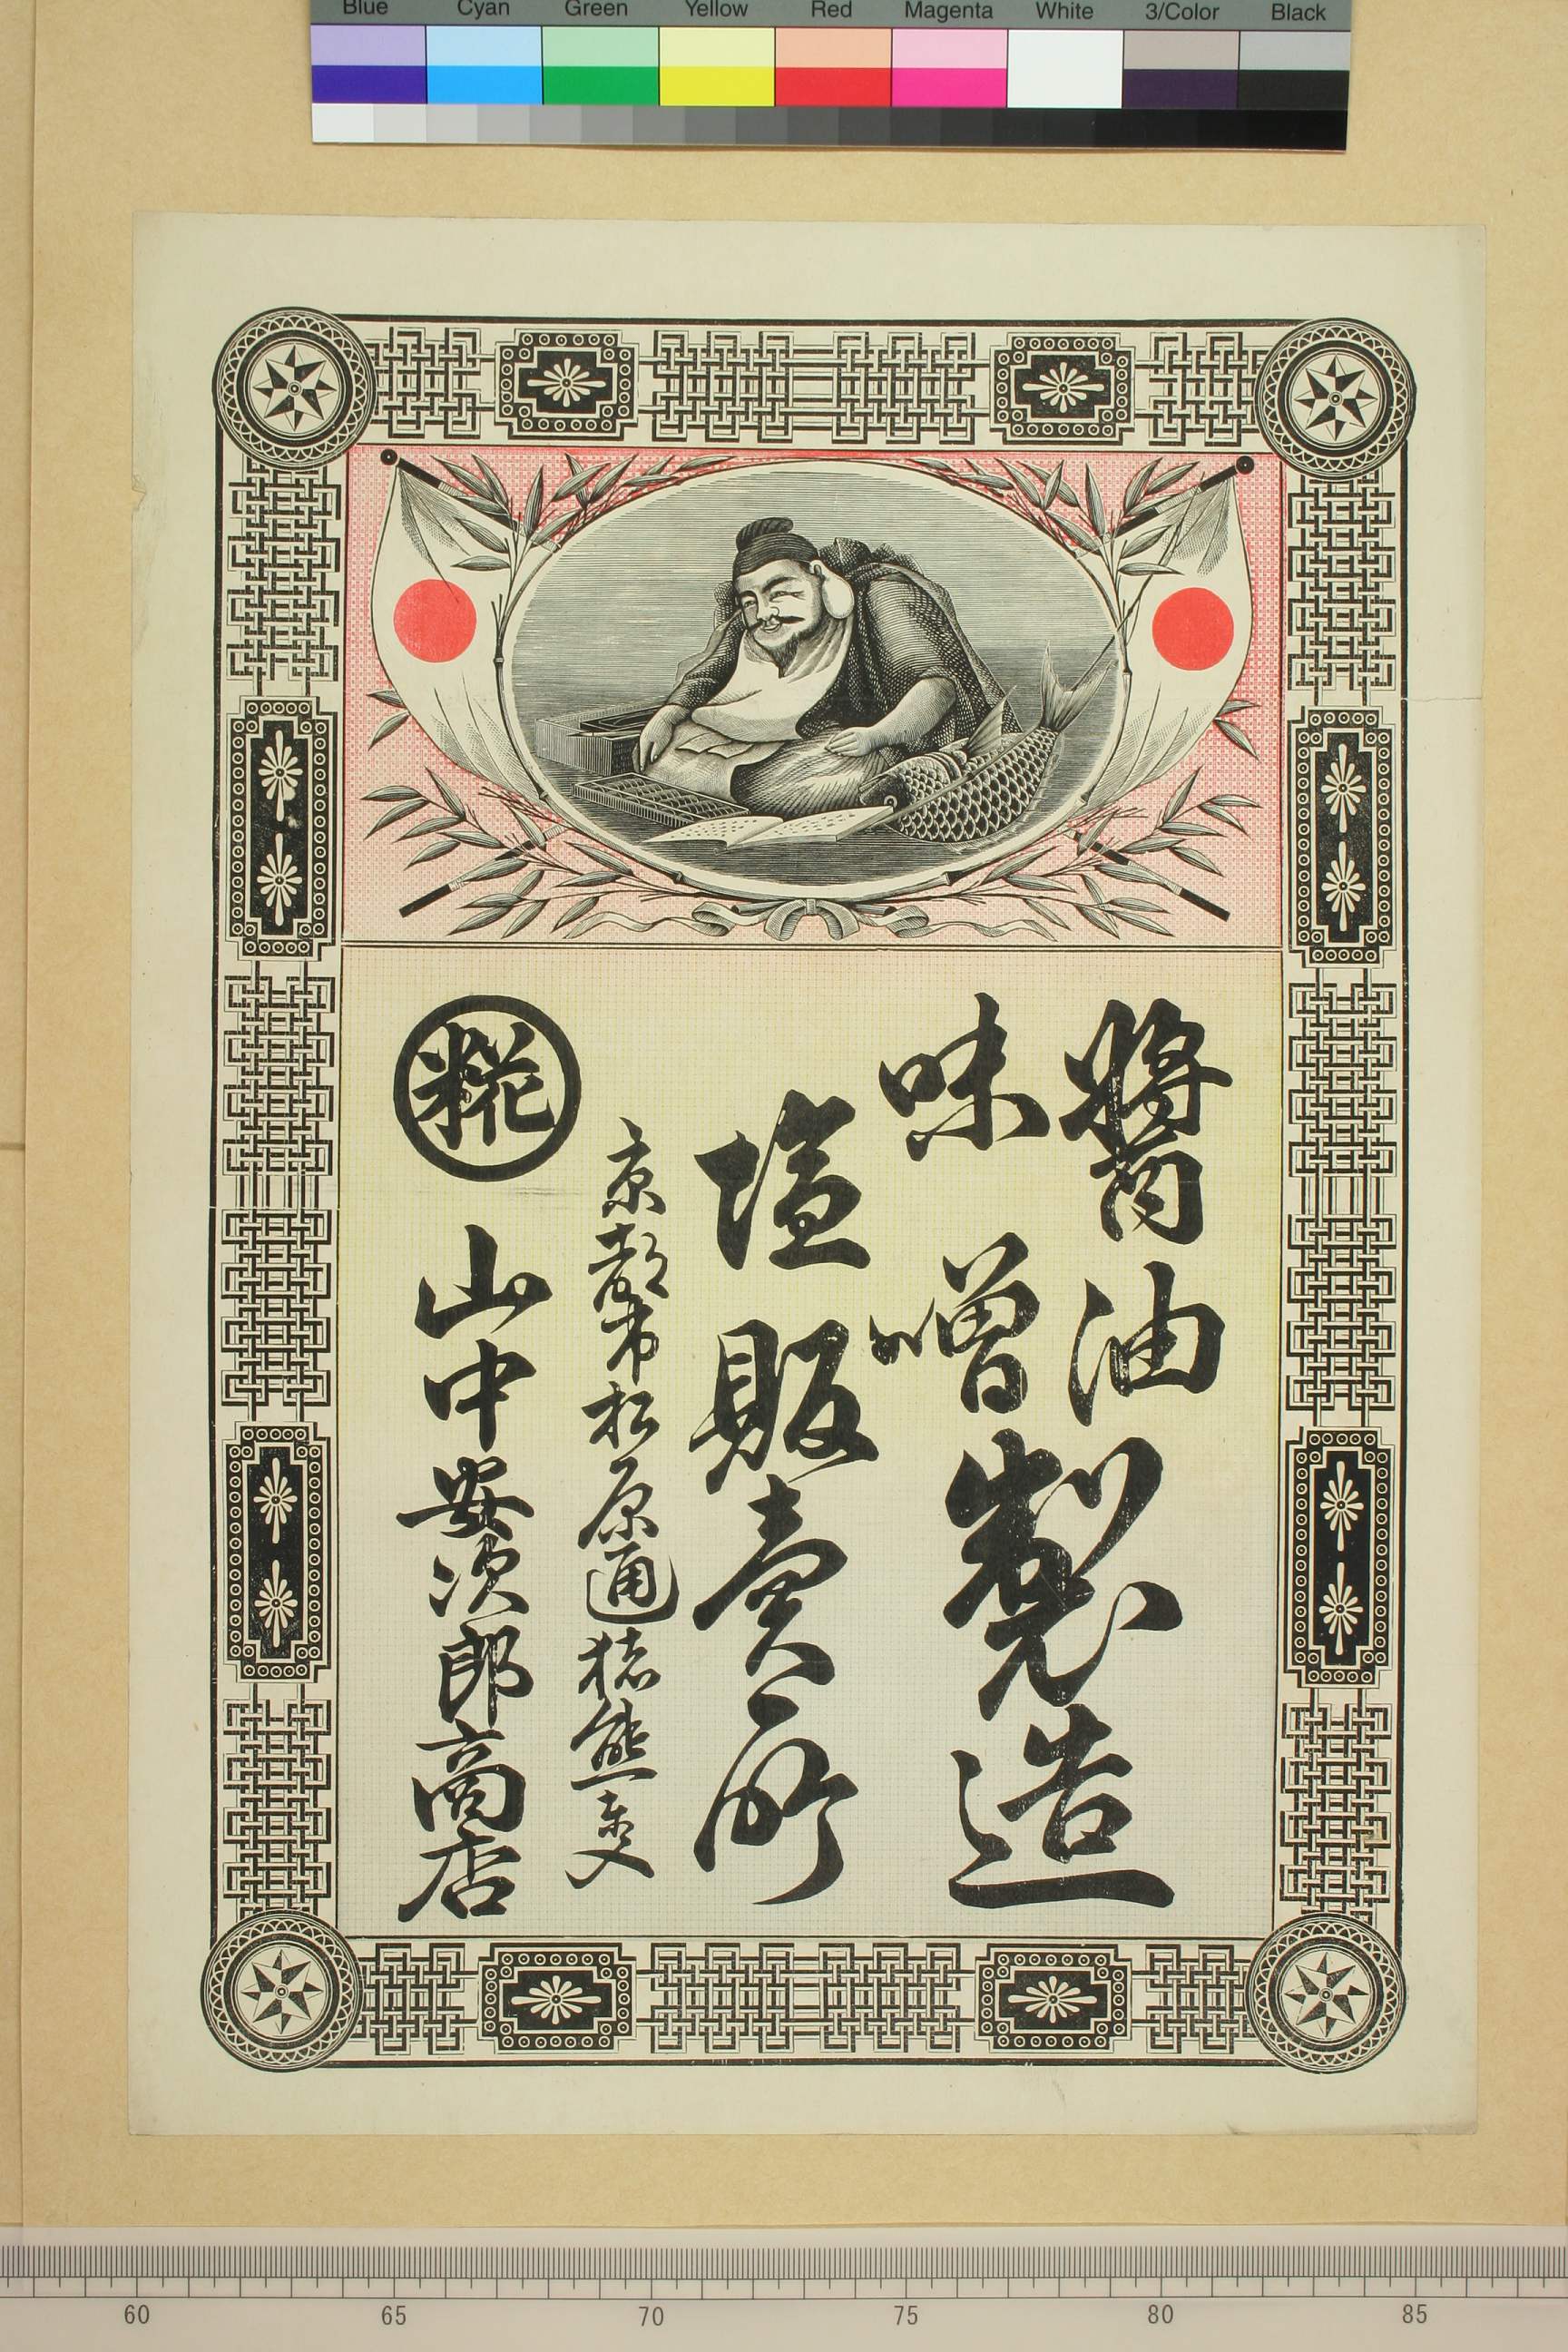 Blue Cyan Green Yellow Red Magenta White 3/Color Black
醬油
味噌
製造
塩販賣所
京都市松原通猪熊東入
糀
山中安次郎商店
60 65 70 75 80 85